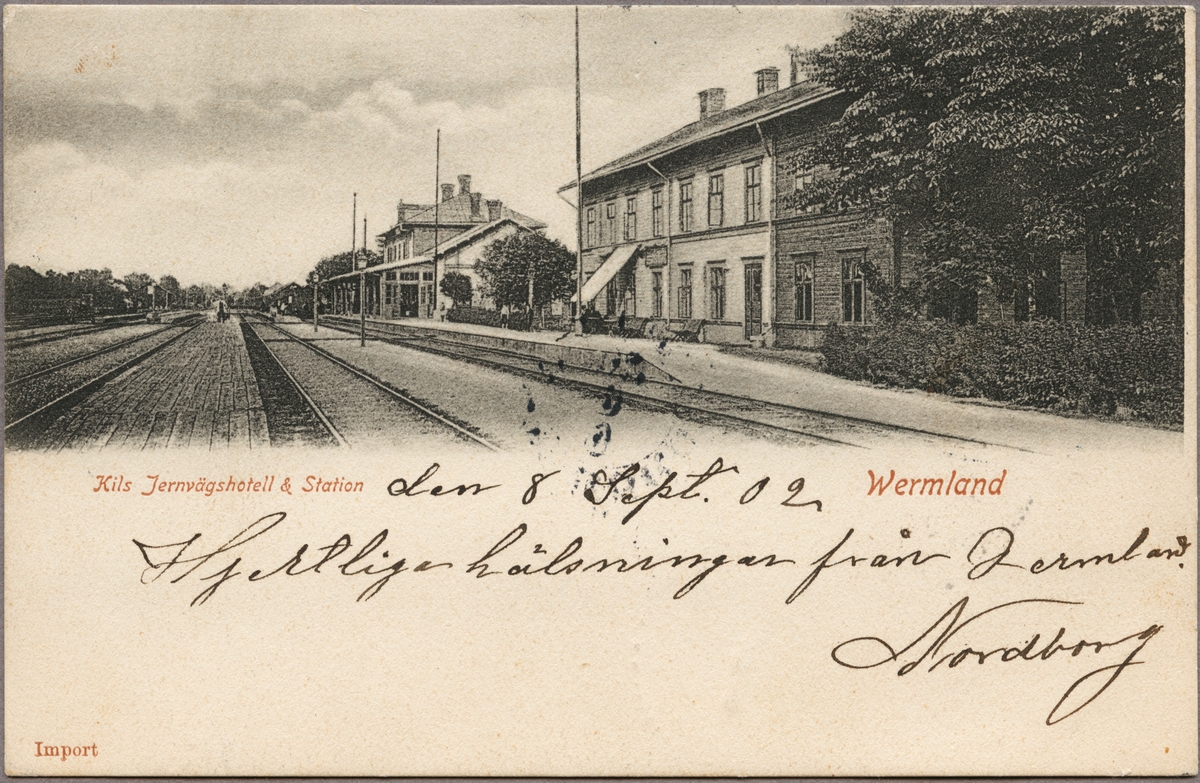 Kils Jernvägshotell & Station den 8 Sept. 02 Wermland
Hjertliga hälsningar från Vermland.
Nordborg
Import